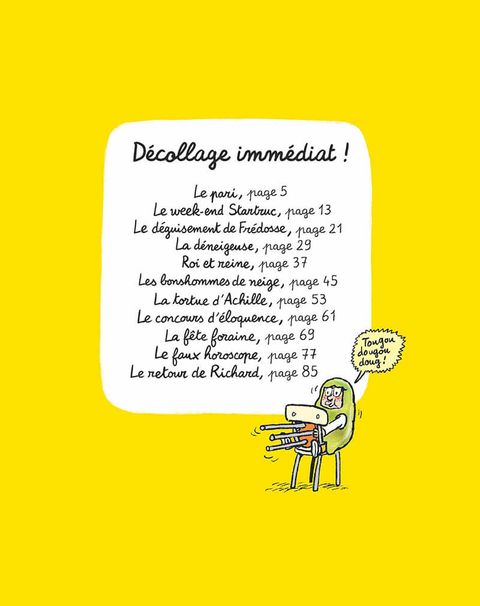 Décollage immédiat !
Le pari, page 5
Le week-end Startruc, page 13
Le déguisement de Frédosse, page 21
La déneigeuse, page 29
Roi et reine, page 37
Les bonshommes de neige, page 45
La tortue d'Achille, page 53
Le concours d'éloquence, page 61
La fête foraine, page 69
Le faux horoscope, page 77
Le retour de Richard, page 85
Tougou
dougou
doug !